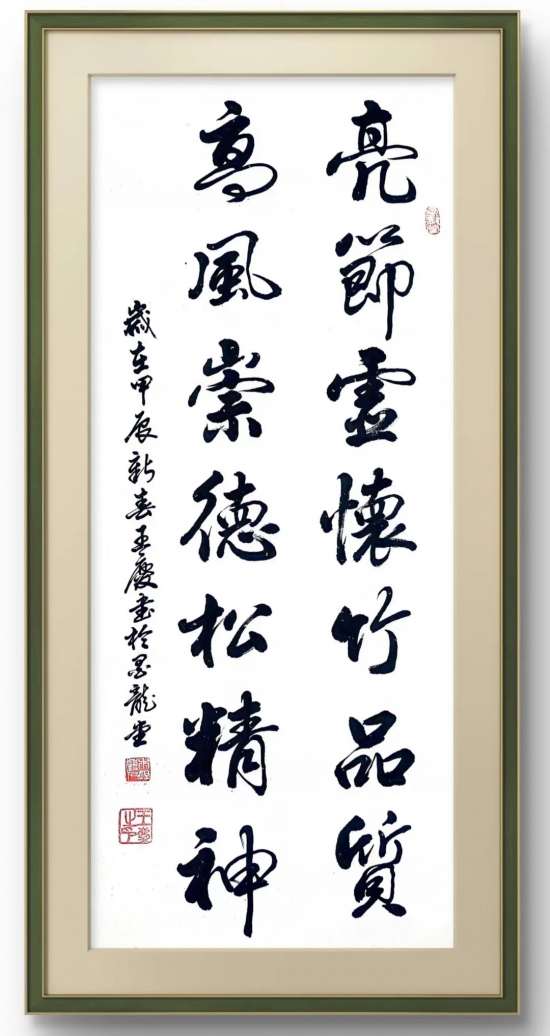 亮節虛懷竹品質
高風崇德松精神
歲在甲辰新春王慶書於墨龍堂